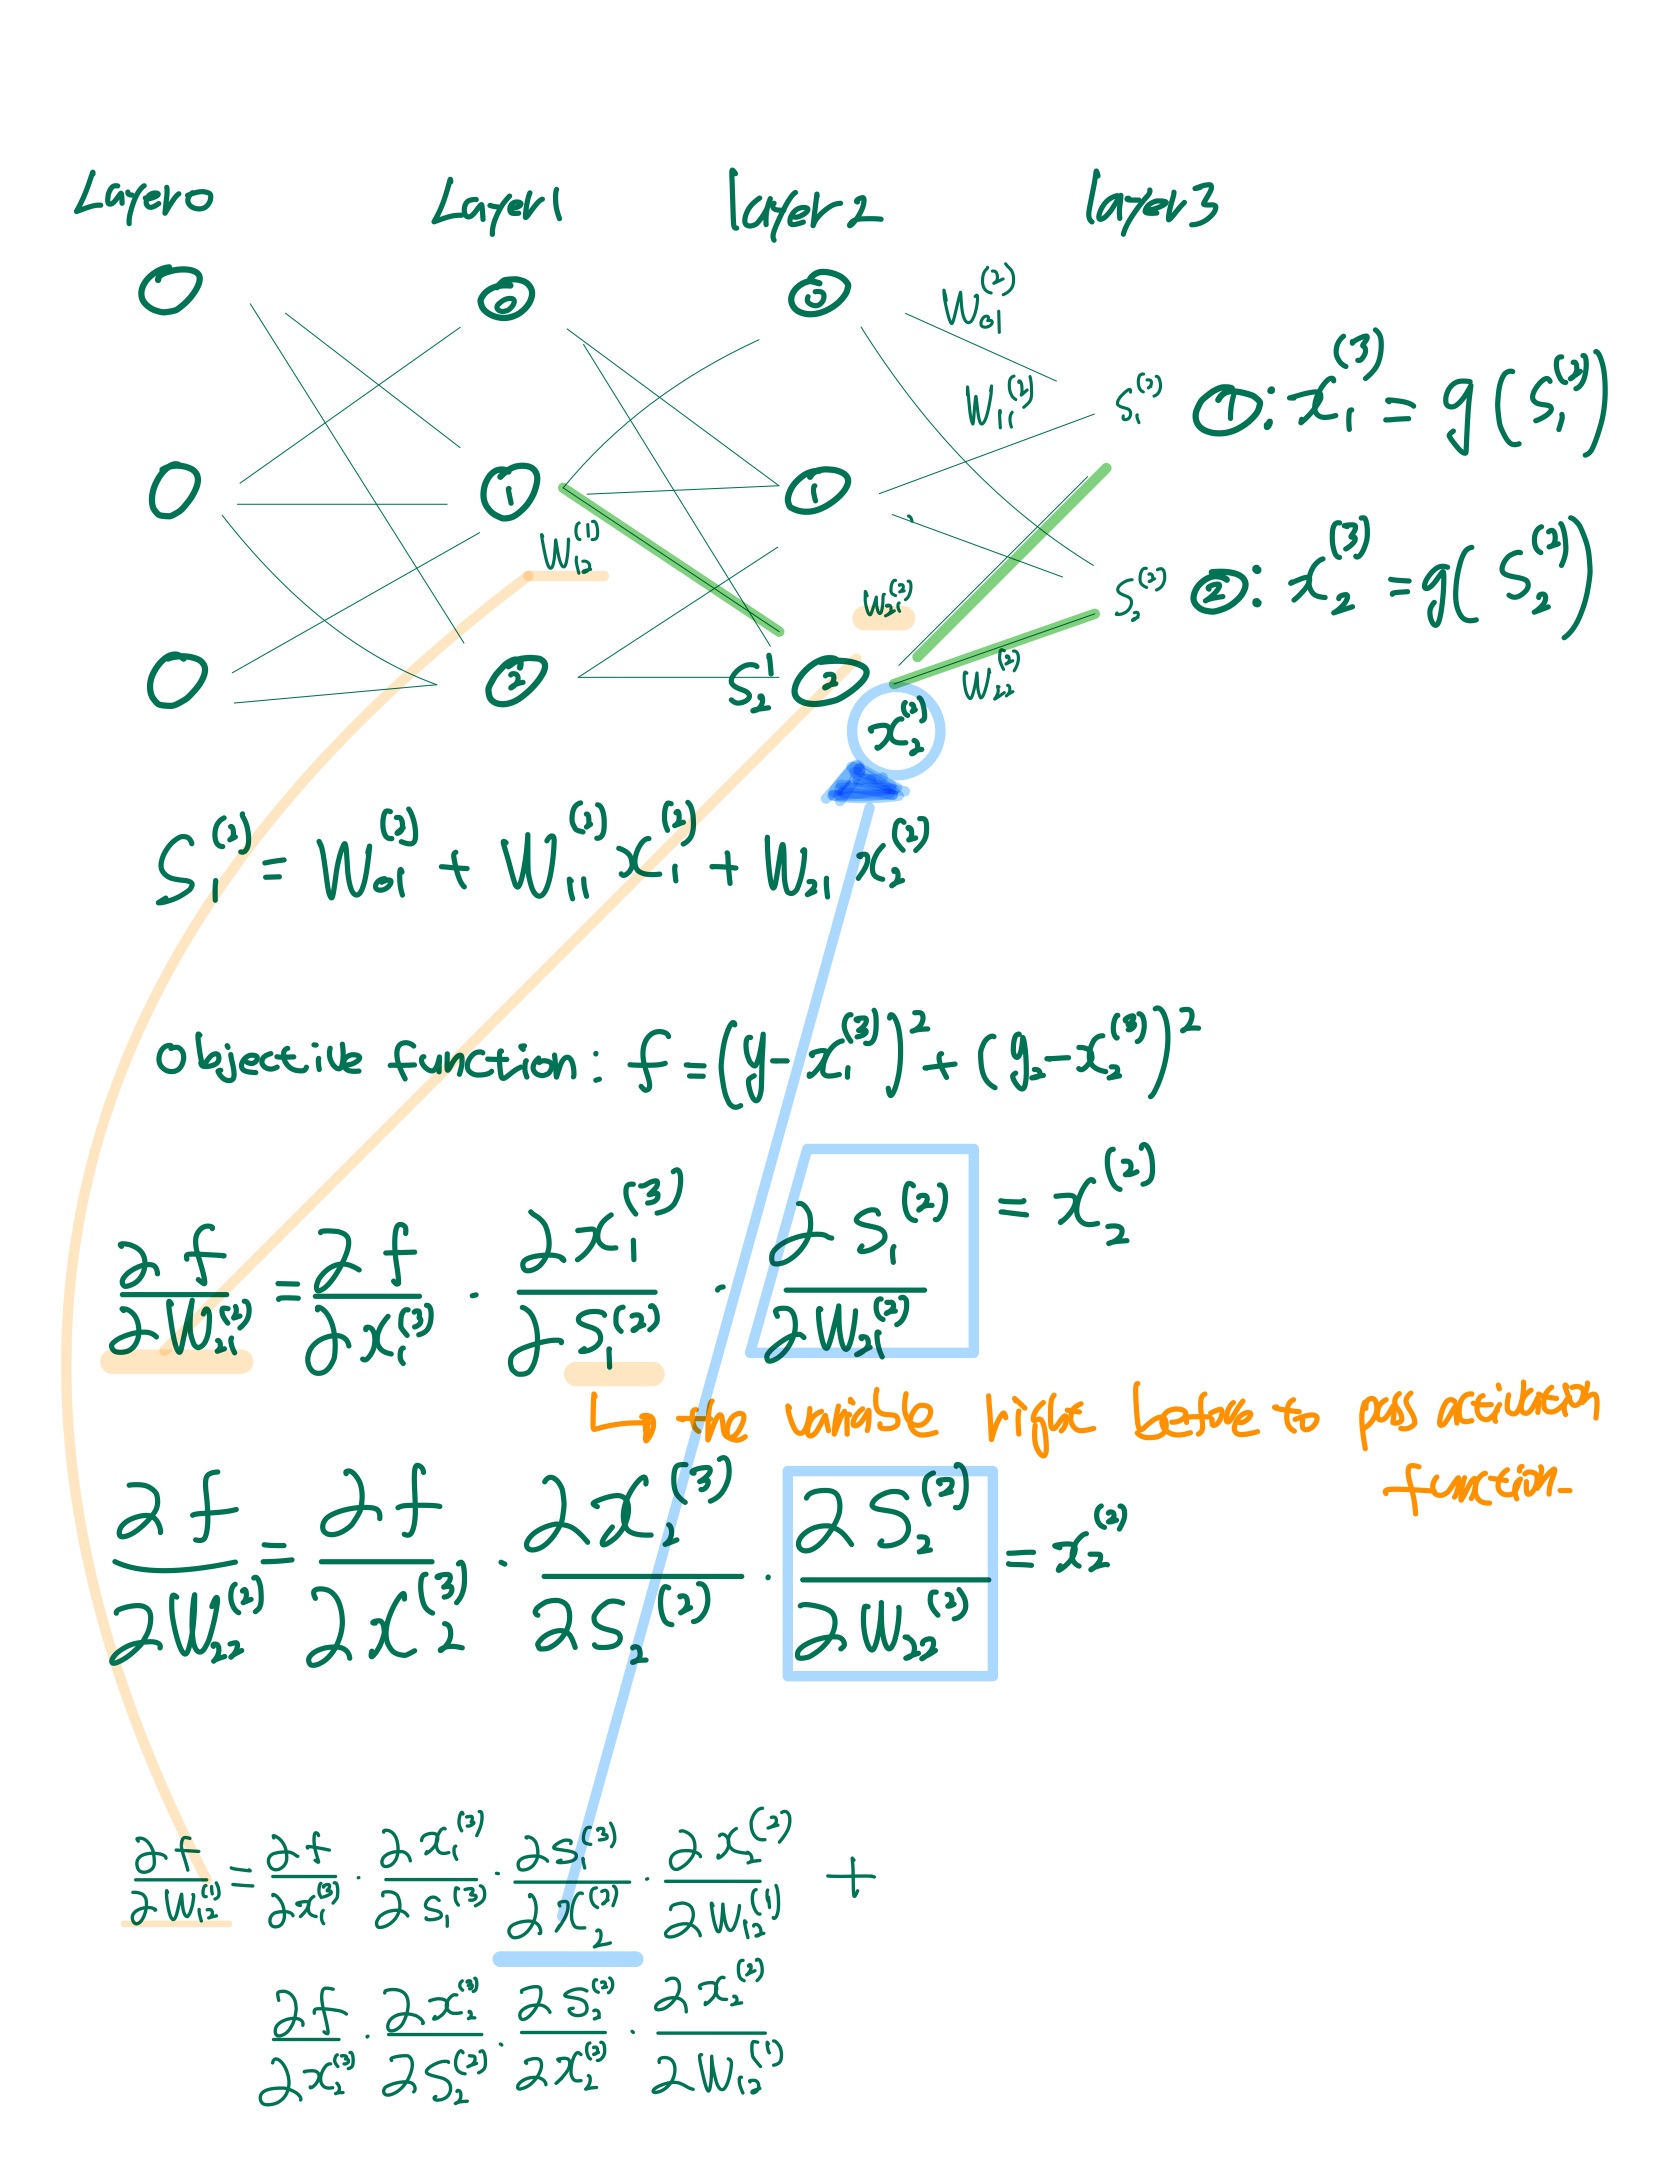 Layer0 Layer1 layer2 layer3
0 0 W₀₁⁽²⁾
W₁₁⁽²⁾ S₁⁽²⁾ ①: x₁⁽³⁾ = g(S₁⁽²⁾)
1 1
W₁₂⁽¹⁾ W₂₁⁽²⁾ S₂⁽²⁾ ②: x₂⁽³⁾ = g(S₂⁽²⁾)
2 S₂¹ 2 W₂₂⁽²⁾
x₂⁽²⁾
S₁⁽²⁾ = W₀₁⁽²⁾ + W₁₁⁽²⁾ x₁⁽²⁾ + W₂₁ x₂⁽²⁾
Objective function: f = (y - x₁⁽³⁾)² + (y₂ - x₂⁽³⁾)²
∂f/∂W₂₁⁽²⁾ = ∂f/∂x₁⁽³⁾ · ∂x₁⁽³⁾/∂S₁⁽²⁾ · ∂S₁⁽²⁾/∂W₂₁⁽²⁾ = x₂⁽²⁾
↳ the variable right before to pass activation
function
∂f/∂W₂₂⁽²⁾ = ∂f/∂x₂⁽³⁾ · ∂x₂⁽³⁾/∂S₂⁽²⁾ · ∂S₂⁽²⁾/∂W₂₂⁽²⁾ = x₂⁽²⁾
∂f/∂W₁₂⁽¹⁾ = ∂f/∂x₁⁽³⁾ · ∂x₁⁽³⁾/∂S₁⁽³⁾ · ∂S₁⁽³⁾/∂x₂⁽²⁾ · ∂x₂⁽²⁾/∂W₁₂⁽¹⁾ +
∂f/∂x₂⁽³⁾ · ∂x₂⁽³⁾/∂S₂⁽²⁾ · ∂S₂⁽²⁾/∂x₂⁽²⁾ · ∂x₂⁽²⁾/∂W₁₂⁽¹⁾